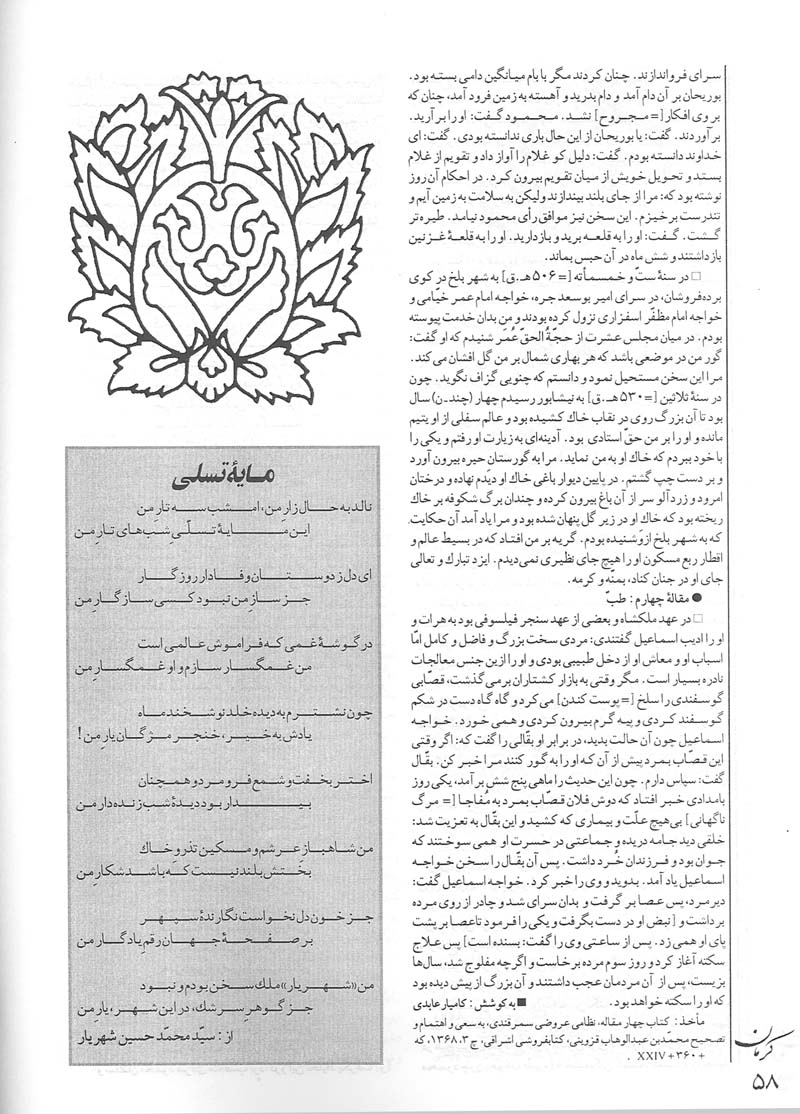 سرای فرو اندازند. چنان کردند مگر با بام میانگین دامی بسته بود.
بوریحان بر آن دام آمد و دام بدرید و آهسته به زمین فرود آمد، چنان که
بر وی افکار [= مجروح] نشد. محمود گفت: او را بر آرید.
بر آوردند. گفت: یا بوریحان از این حال باری ندانسته بودی. گفت: ای
خداوند دانسته بودم. گفت: دلیل کو غلام را آواز داد و تقویم از غلام
بستد و تحویل خویش از میان تقویم بیرون کرد. در احکام آن روز
نوشته بود که: مرا از جای بلند بیندازند ولیکن به سلامت به زمین آیم و
تندرست برخیزم. این سخن نیز موافق رأی محمود نیامد. طیره تر
گشت. گفت: او را به قلعه برید و بازدارید. او را به قلعهٔ غزنین
بازداشتند و شش ماه در آن حبس بماند.
□ در سنهٔ ستّ و خمسمأته [= ۵۰۶ هـ.ق] به شهر بلخ در کوی
برده‌فروشان، در سرای امیر بوسعد جره، خواجه امام عمر خیّامی و
خواجه امام مظفّر اسفزاری نزول کرده بودند و من بدان خدمت پیوسته
بودم. در میان مجلس عشرت از حجّةُ الحقّ عُمَر شنیدم که او گفت:
گور من در موضعی باشد که هر بهاری شمال بر من گل افشان می کند.
مرا این سخن مستحیل نمود و دانستم که چنویی گزاف نگوید. چون
در سنهٔ ثلاثین [= ۵۳۰ هـ.ق] به نیشابور رسیدم چهار (چند-ن) سال
بود تا آن بزرگ روی در نقاب خاک کشیده بود و عالم سفلی از او یتیم
مانده و او را بر من حقّ استادی بود. آدینه‌ای به زیارت او رفتم و یکی را
با خود ببردم که خاک او به من نماید. مرا به گورستان حیره بیرون آورد
و بر دست چپ گشتم. در پایین دیوار باغی خاک او دیدم نهاده و درختان
امرود و زردآلو سر از آن باغ بیرون کرده و چندان برگ شکوفه بر خاک
ریخته بود که خاک او در زیر گل پنهان شده بود و مرا یاد آمد آن حکایت
که به شهر بلخ ازو شنیده بودم. گریه بر من افتاد که در بسیط عالم و
اقطار ربع مسکون او را هیچ جای نظیری نمی‌دیدم. ایزد تبارک و تعالی
جای او در جنان کناد، بمنّه و کرمه.
● مقالهٔ چهارم: طبّ
□ در عهد ملکشاه و بعضی از عهد سنجر فیلسوفی بود به هرات و
او را ادیب اسماعیل گفتندی: مردی سخت بزرگ و فاضل و کامل امّا
اسباب او و معاش او از دخل طبیبی بودی و او را ازین جنس معالجات
نادره بسیار است. مگر وقتی به بازار کشتاران برمی گذشت، قصّابی
گوسفندی را سلخ [= پوست کندن] می کرد و گاه گاه دست در شکم
گوسفند کردی و پیه گرم بیرون کردی و همی خورد. خواجه
اسماعیل چون آن حالت بدید، در برابر او بقّالی را گفت که: اگر وقتی
این قصّاب بمرد پیش از آن که او را به گور کنند مرا خبر کن. بقّال
گفت: سپاس دارم. چون این حدیث را ماهی پنج شش بر آمد، یکی روز
بامدادی خبر افتاد که دوش فلان قصّاب بمرد به مُفاجا [= مرگ
ناگهانی] بی هیچ علّت و بیماری که کشید و این بقّال به تعزیت شد:
خلقی دید جامه دریده و جماعتی در حسرت او همی سوختند که
جوان بود و فرزندان خُرد داشت. پس آن بقّال را سخن خواجه
اسماعیل یاد آمد. بدوید و وی را خبر کرد. خواجه اسماعیل گفت:
دیر مرد، پس عصا بر گرفت و بدان سرای شد و چادر از روی مرده
برداشت و [نبض او در دست بگرفت و یکی را فرمود تا عصا بر پشت
پای او همی زد. پس از ساعتی وی را گفت: بسنده است] پس علاج
سکته آغاز کرد و روز سوم مرده برخاست و اگر چه مفلوج شد، سال‌ها
بزیست، پس از آن مردمان عجب داشتند و آن بزرگ از پیش دیده بود
که او را سکته خواهد بود.
■ به کوشش: کامیار عابدی
مأخذ: کتاب چهار مقاله، نظامی عروضی سمرقندی، به سعی و اهتمام و
تصحیح محمّد بن عبدالوهاب قزوینی، کتابفروشی اشراقی، چ ۳، ۱۳۶۸، که
+ ۳۶۰ + XXIV .
مایهٔ تسلی
نالد به حال زارِ من، امشب سه تارِ من
این مایهٔ تسلّیِ شب‌های تارِ من
ای دل ز دوستان وفادار روزگار
جز سازِ من نبود کسی سازگارِ من
در گوشهٔ غمی که فراموش عالمی است
من غمگسار سازم و او غمگسارِ من
چون نشترم به دیده خلد نوشخند ماه
یادش به خیر، خنجر مژگان یارِ من!
اختر بخفت و شمع فرو مرد و همچنان
بیدار بود دیدهٔ شب زنده دار من
من شاهباز عرشم و مسکین تذرو خاک
بختش بلند نیست که باشد شکارِ من
جز خون دل نخواست نگارندهٔ سپهر
بر صفحهٔ جهان رقم یادگار من
من «شهریار» ملک سخن بودم و نبود
جز گوهرِ سرشک، در این شهر، یارِ من
از: سیّد محمّد حسین شهریار
کرمان
۵۸